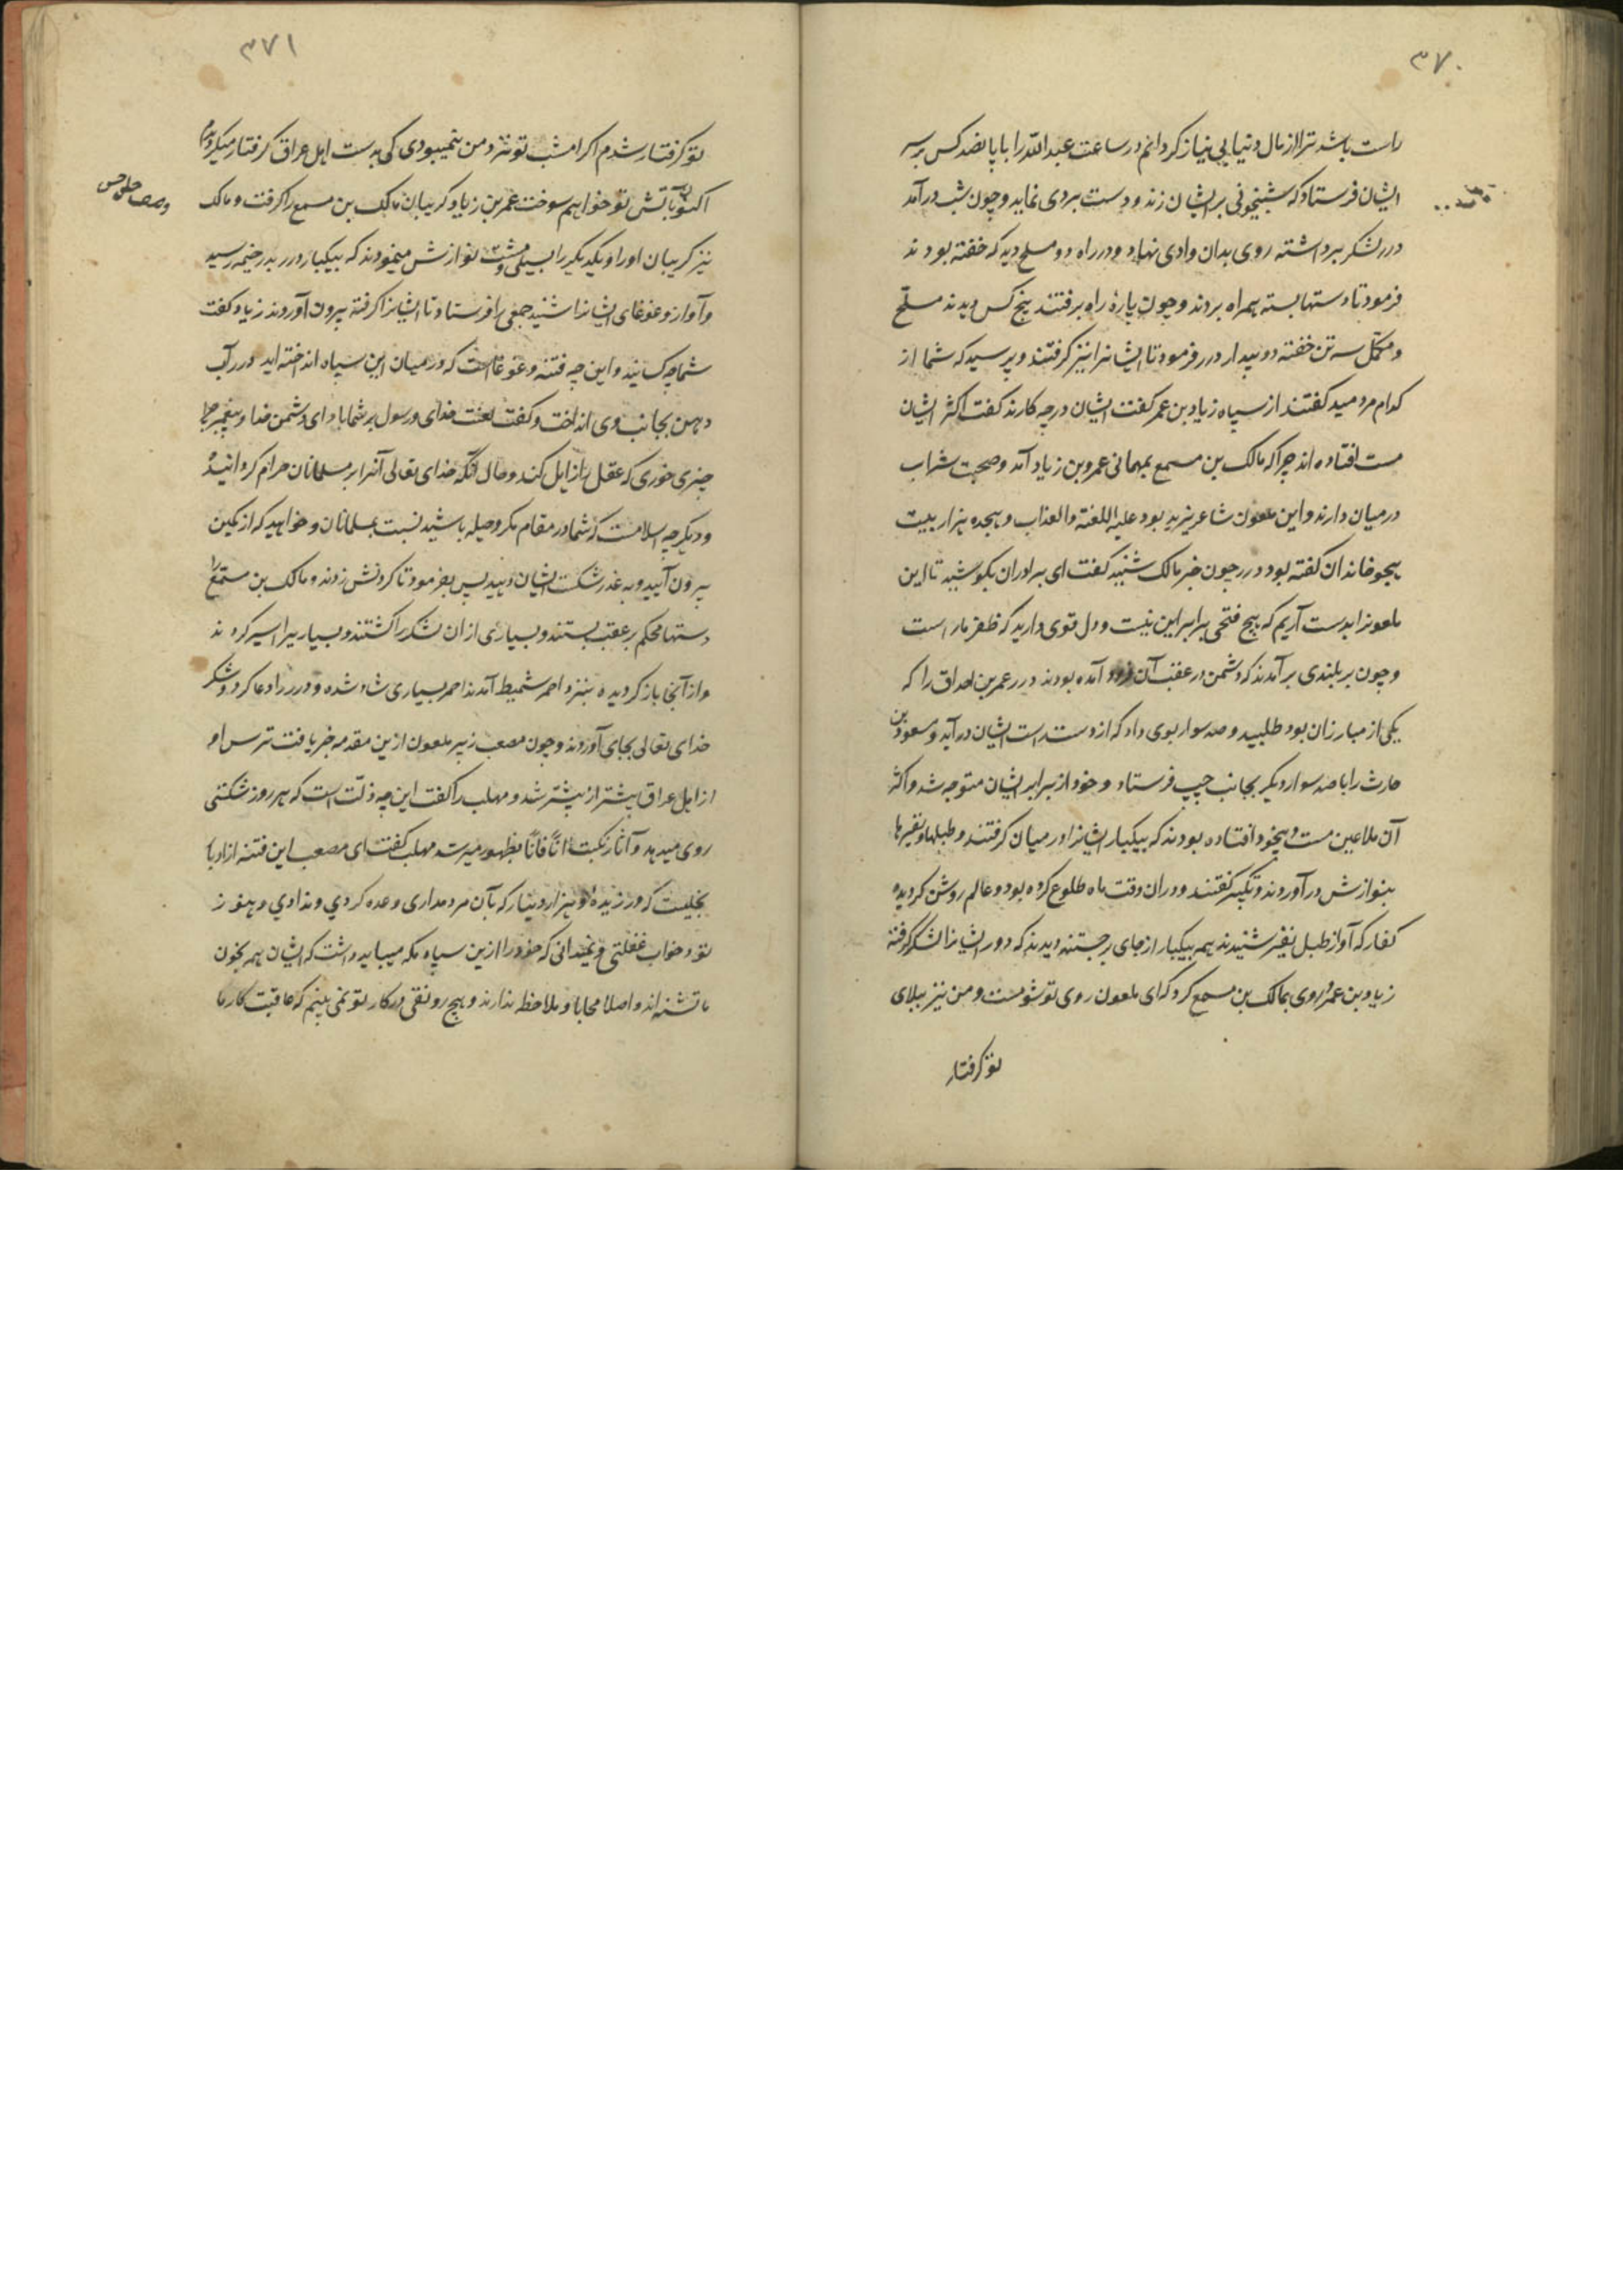 ۳۷۰
راست باشد ترا از مال دنیا بی نیاز کردانم در ساعت عبدالله را با پانصد کس بر سر
ایشان فرستاد که شبیخونی بر ایشان زند و دست بردی نماید و چون شب درآمد
درر لشکر برداشته روی بدان وادی نهاد و در راه دو مسلح دید که خفته بودند
فرمود تا دستها بسته بهمراه بردند و چون پارهٔ راه برفتند پنج کس دیدند مسلّح
و مکمّل سه تن خفته دو بیدار درر فرمود تا ایشانرا نیز کرفتند و پرسید که شما از
کدام مردمید کفتند از سپاه زیاد بن عمر کفت ایشان در چه کارند کفت اکثر ایشان
مست افتاده اند چرا که مالک بن مسمع بمهمانی عمرو بن زیاد آمد و صحبت شراب
در میان دارند و این ملعون شاعر یزید بود علیه اللعنة والعذاب و هجده هزار بیت
هجو خاندان کفته بود درر چون خبر مالک شنید کفت ای برادران بکوشید تا این
ملعونرا بدست آریم که هیچ فتحی برابر این نیست و دل قوی دارید که ظفر ما راست
و چون بر بلندی برآمدند که دشمن در عقب آن فرود آمده بودند درر عمر بن احداق را که
یکی از مبارزان بود طلبید و صد سوار بوی داد که از دست راست ایشان درآید و مسعود بن
حارث را با صد سوار دیکر بجانب چپ فرستاد و خود از برابر ایشان متوجه شد و اکثر
آن ملاعین مست و بیخود افتاده بودند که بیکبار ایشانرا در میان کرفتند و طبلها و نفیرها
بنوازش درآوردند و تکبیر کفتند و در ان وقت ماه طلوع کرده بود و عالم روشن کردیده
کفار که آواز طبل نفیر شنیدند همه بیکبار از جای برجستند دیدند که دور ایشانرا لشکر کرفته
زیاد بن عمر روی بمالک بن مسمع کرد که ای ملعون روی تو شومست و من نیز ببلای
تو کرفتار
۳۷۱
تو کرفتار شدم اکر امشب تو نزد من نمیبودی کی بدست اهل عراق کرفتار میکردیدم
اکنون بآتش تو خواهم سوخت عمر بن زیاد کریبان مالک بن مسمع را کرفت و مالک
نیز کریبان او را و یکدیکر را بسیلی و مشت نوازش مینمودند که بیکبار درر بدر خیمه رسید
و آواز و غوغای ایشانرا شنید جمعی را فرستاد تا ایشانرا کرفته بیرون آوردند زیاد کفت
شما چه کسانید و این چه فتنه و غوغاست که در میان این سپاه انداخته اید درر آب
دهن بجانب وی انداخت و کفت لعنت خدای و رسول بر شما باد ای دشمن خدا و پیغمبر چرا
چیزی خوری که عقل را زایل کند و حال آنکه خدای تعالی آنرا بر مسلمانان حرام کردانیده
و دیکر چه اسلامست که شما در مقام مکر و حیله باشید نسبت بمسلمانان و خواهید که از کمین
بیرون آیید و به غدر شکست ایشان دهید پس بفرمود تا کردنش زدند و مالک بن مسمع را
دستها محکم بر عقب بستند و بسیاری از ان لشکر را کشتند و بسیاریرا اسیر کردند
و از آنجا باز کردیده بنزد احمر شمیط آمدند احمر بسیاری شاد شده و درر را دعا کرد و شکر
خدای تعالی بجای آوردند و چون مصعب زبیر ملعون ازین مقدمه خبر یافت ترس او
از اهل عراق بیشتر از پیشتر شد و مهلب را کفت این چه ذلّت است که هر روز شکستی
روی میدهد و آثار نکبت آناً فاناً بظهور میرسد مهلب کفت ای مصعب این فتنه از ادبار
بخلیست که ورزیدهٔ و هزار دینار که بآن مرد مداری وعده کردی و ندادی و هنوز
تو در خواب غفلتی و نمیدانی که خود را ازین سپاه نکه میباید داشت که ایشان همه بخون
ما تشنه اند و اصلا محابا و ملاحظه ندارند و هیچ رونقی در کار تو نمی بینم که عاقبت کار ما